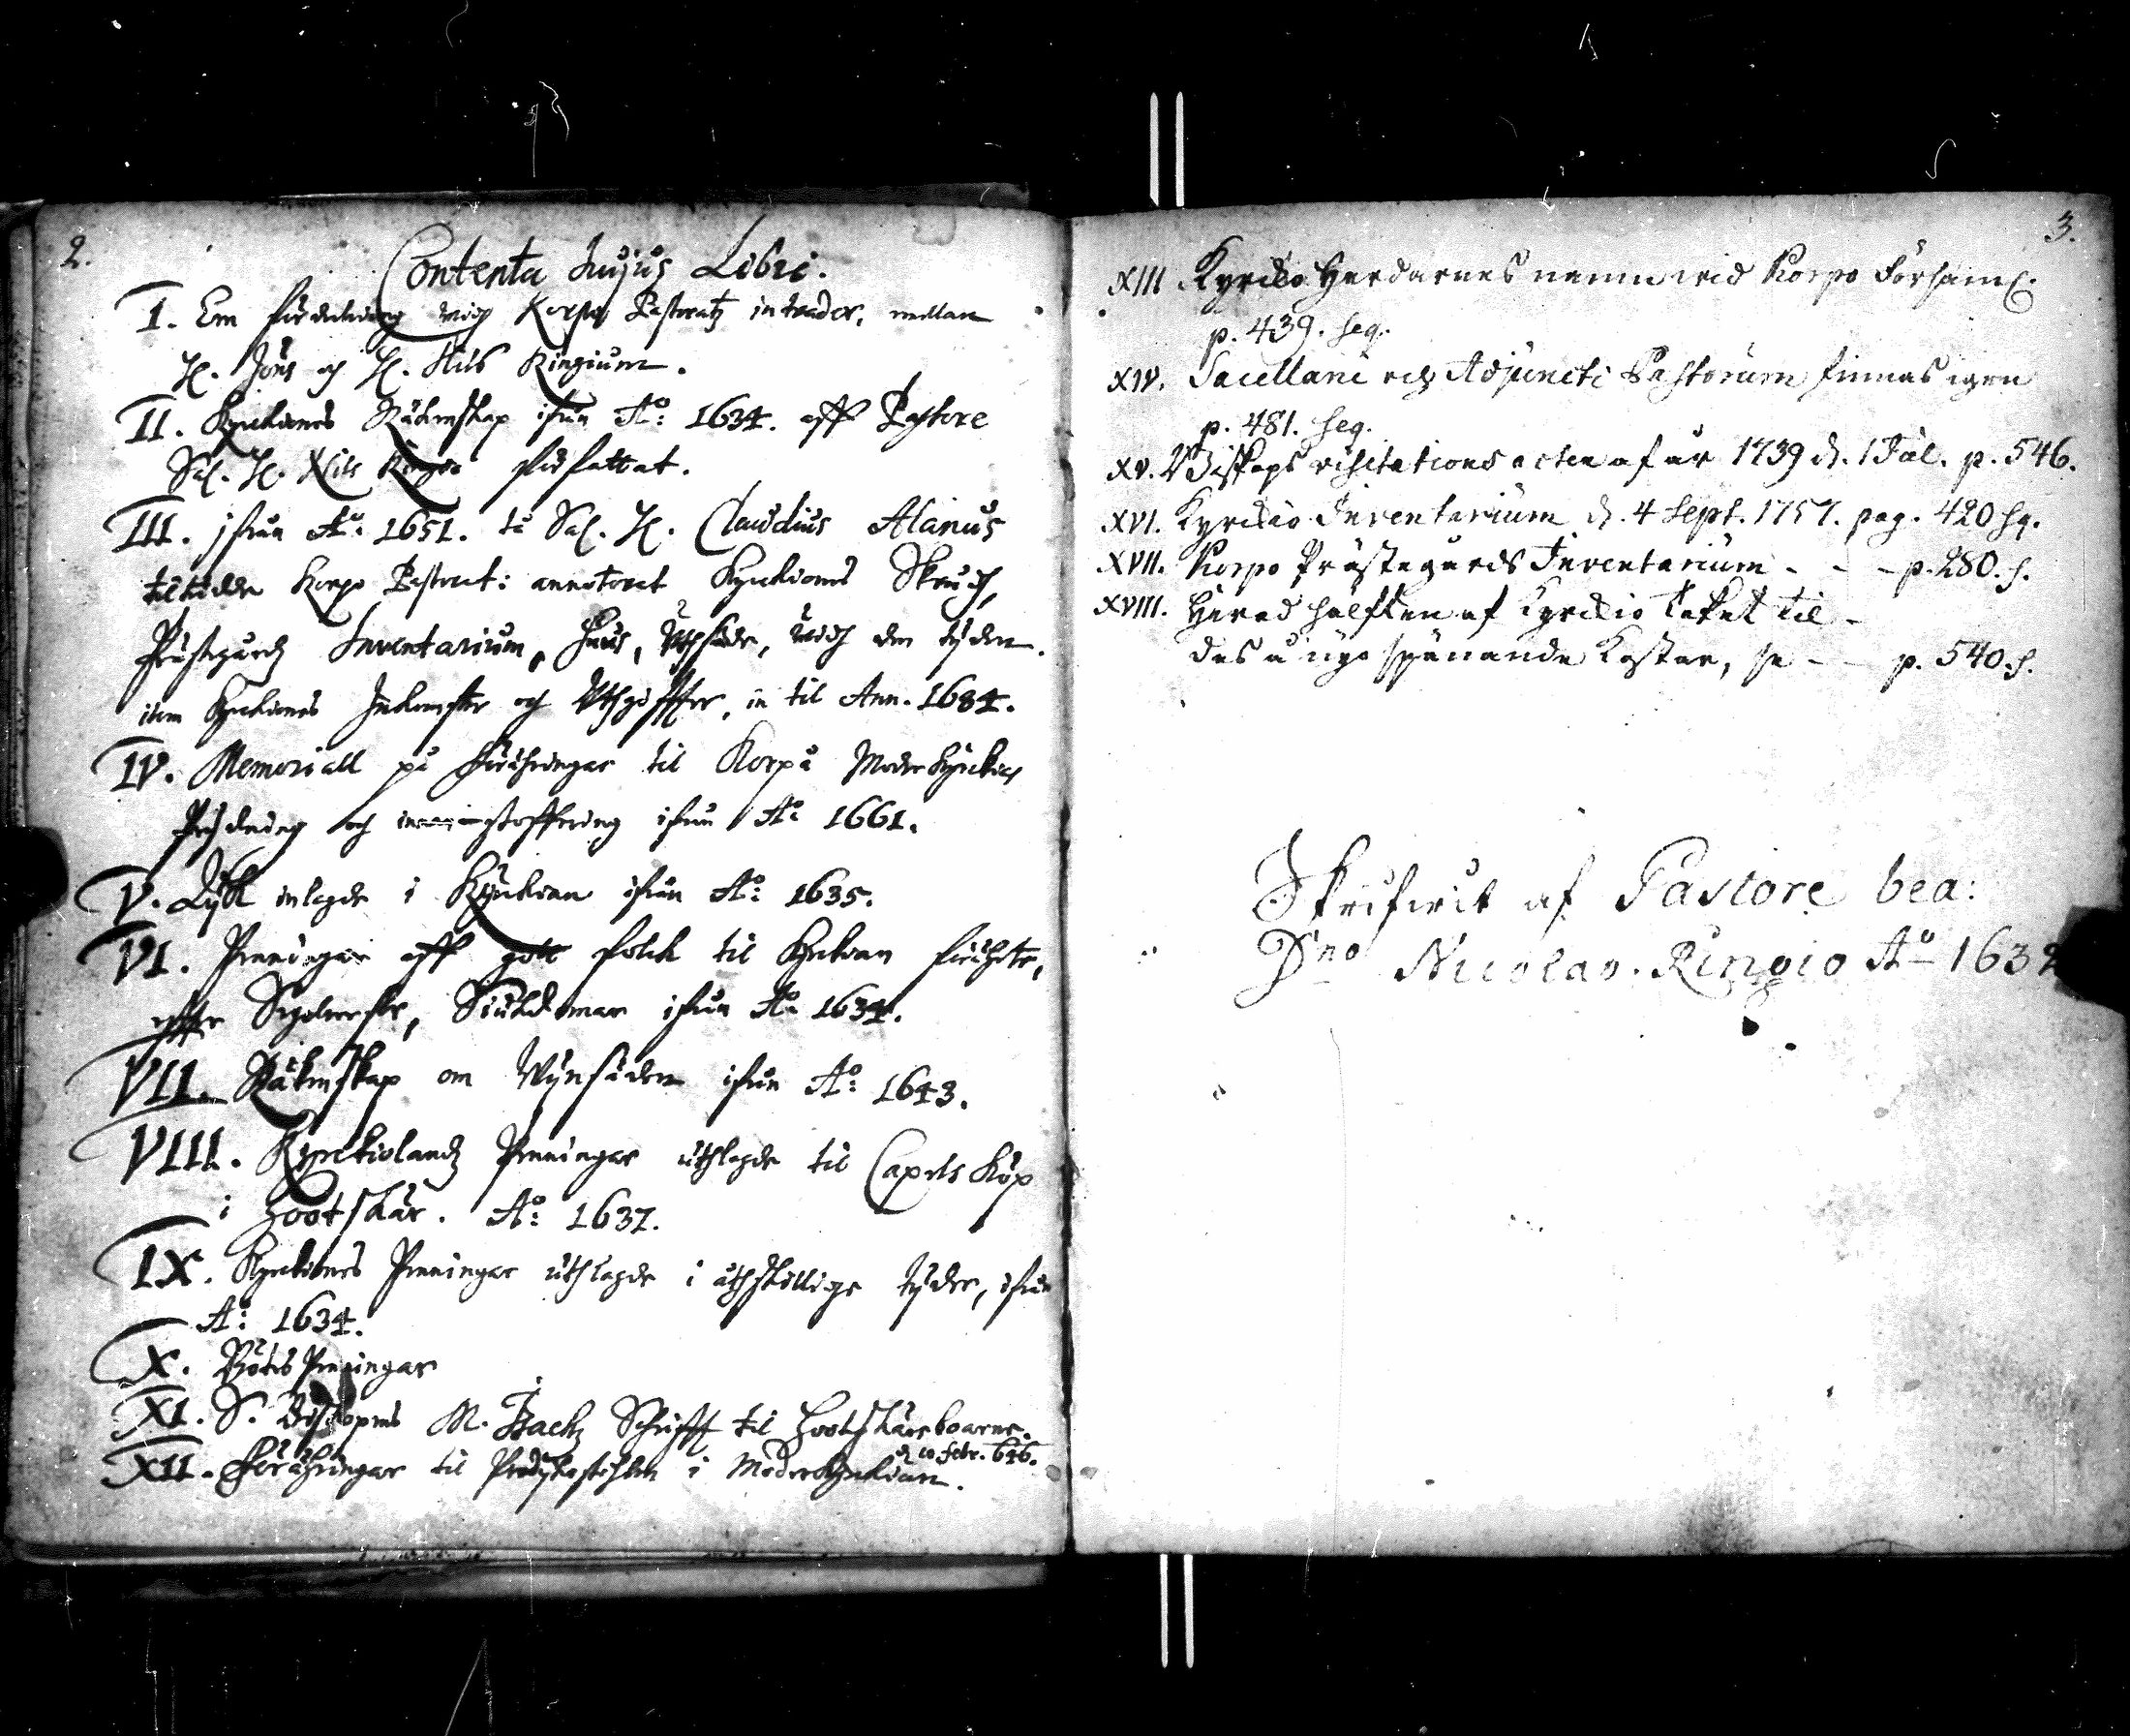 2.
Contenta hujus Libri.
I. Om fördelning vidh Korpo Pastoratz intrader, mellan
H. Jöns och H. Nils Ringium.
II. Kyrckiones Räkenskap ifrån Aᵒ: 1634. aff Pastore
Sal. H. Nils Ringio författat.
III. ifrån Aᵒ: 1651. tå Sal. H. Claudius Alanus
tilträdde Korpo Pastorat: annoterat Kyrckiones Skrudh,
Prästgårdz Inventarium, Huus, Uthsäde, widh den tijden.
item Kyrckiones Inkomster och Uthgiffter, in til Ann. 1684.
IV. Memoriall på förähringar til Korpå Moder Kyrckios
Prydning och staffering ifrån Aᵒ 1661.
V. Lijk inlagde i Kyrckian ifrån Aᵒ: 1635.
VI. Penningar aff gott folck til Kyrckian förährte,
effter Siukdomar ifrån Aᵒ 1634.
VII. Räkenskap om Wynsäden ifrån Aᵒ: 1643.
VIII. Kyrckiolandz Penningar uthlagde til Capels Köp
i Hootskär. Aᵒ: 1637.
IX. Kyrckiones Penningar uthlagde i åthskillige tijder, ifrån
Aᵒ: 1634.
X. Böthes Penningar
XI. S. Biskopens M. Isachz Schrifft til Hootskärsboarne.
d. 10 febr. 646.
XII. Förähringar til Predikostohlen i Moderkyrckian.
3.
XIII Kyrkio Herdarnes namn wid Korpo Församl.
p. 439. seq.
XIV. Sacellani och Adjuncti Pastorum finnas igen
p. 481. seq.
XV. Biskops visitations acten af år 1739 d. 1 Jul. p. 546.
XVI. Kyrkio Inventarium d. 4 Sept. 1757. pag. 420 sq.
XVII. Korpo Prästegårds Inventarium - - - p. 280. s.
XVIII. Hurad hälften af Kyrkio taket til-
des å nyo spånande Kostar, se - - p. 540. s.
Skrifwit af Pastore bea:
Dno Nicolao. Ringio Aᵒ 1632